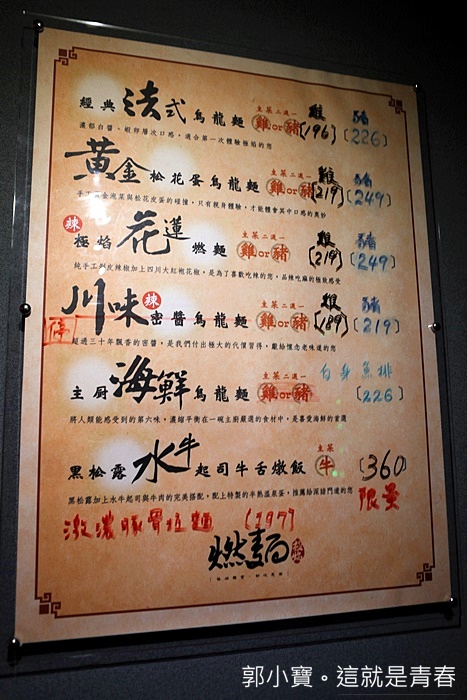 經典法式烏龍麵 主菜二選一 雞or豬 雞(196) 豬(226)
濃郁白醬、蝦卵層次口感，適合第一次體驗極焰的您
黃金松花蛋烏龍麵 主菜二選一 雞or豬 雞(219) 豬(249)
手工黃金泡菜與松花皮蛋的碰撞，只有親身體驗，才能體會其中口感的奧妙
辣 極焰花蓮燃麵 雞or豬 雞(219) 豬(249)
純手工剝皮辣椒加上四川大紅袍花椒，是為了喜歡吃辣的您，品辣吃麻的極致感受
停 川味辣密醬烏龍麵 主菜二選一 雞or豬 雞(189) 豬(219)
超過三十年飄香的密醬，是我們付出極大的代價習得，獻給懷念老味道的您
主廚海鮮烏龍麵 主菜二選一 雞or豬 白身魚排(226)
將人類能感受到的第六味，濃縮平衡在一碗主廚嚴選的食材中，是喜愛海鮮的首選
黑松露水牛起司牛舌燉飯 主菜 牛 (360)
黑松露加上水牛起司與牛肉的完美搭配，配上特製的半熟溫泉蛋，推薦給深諳門道的您 限量
激濃豚骨拉麵 (197)
燃麵
郭小寶。這就是青春